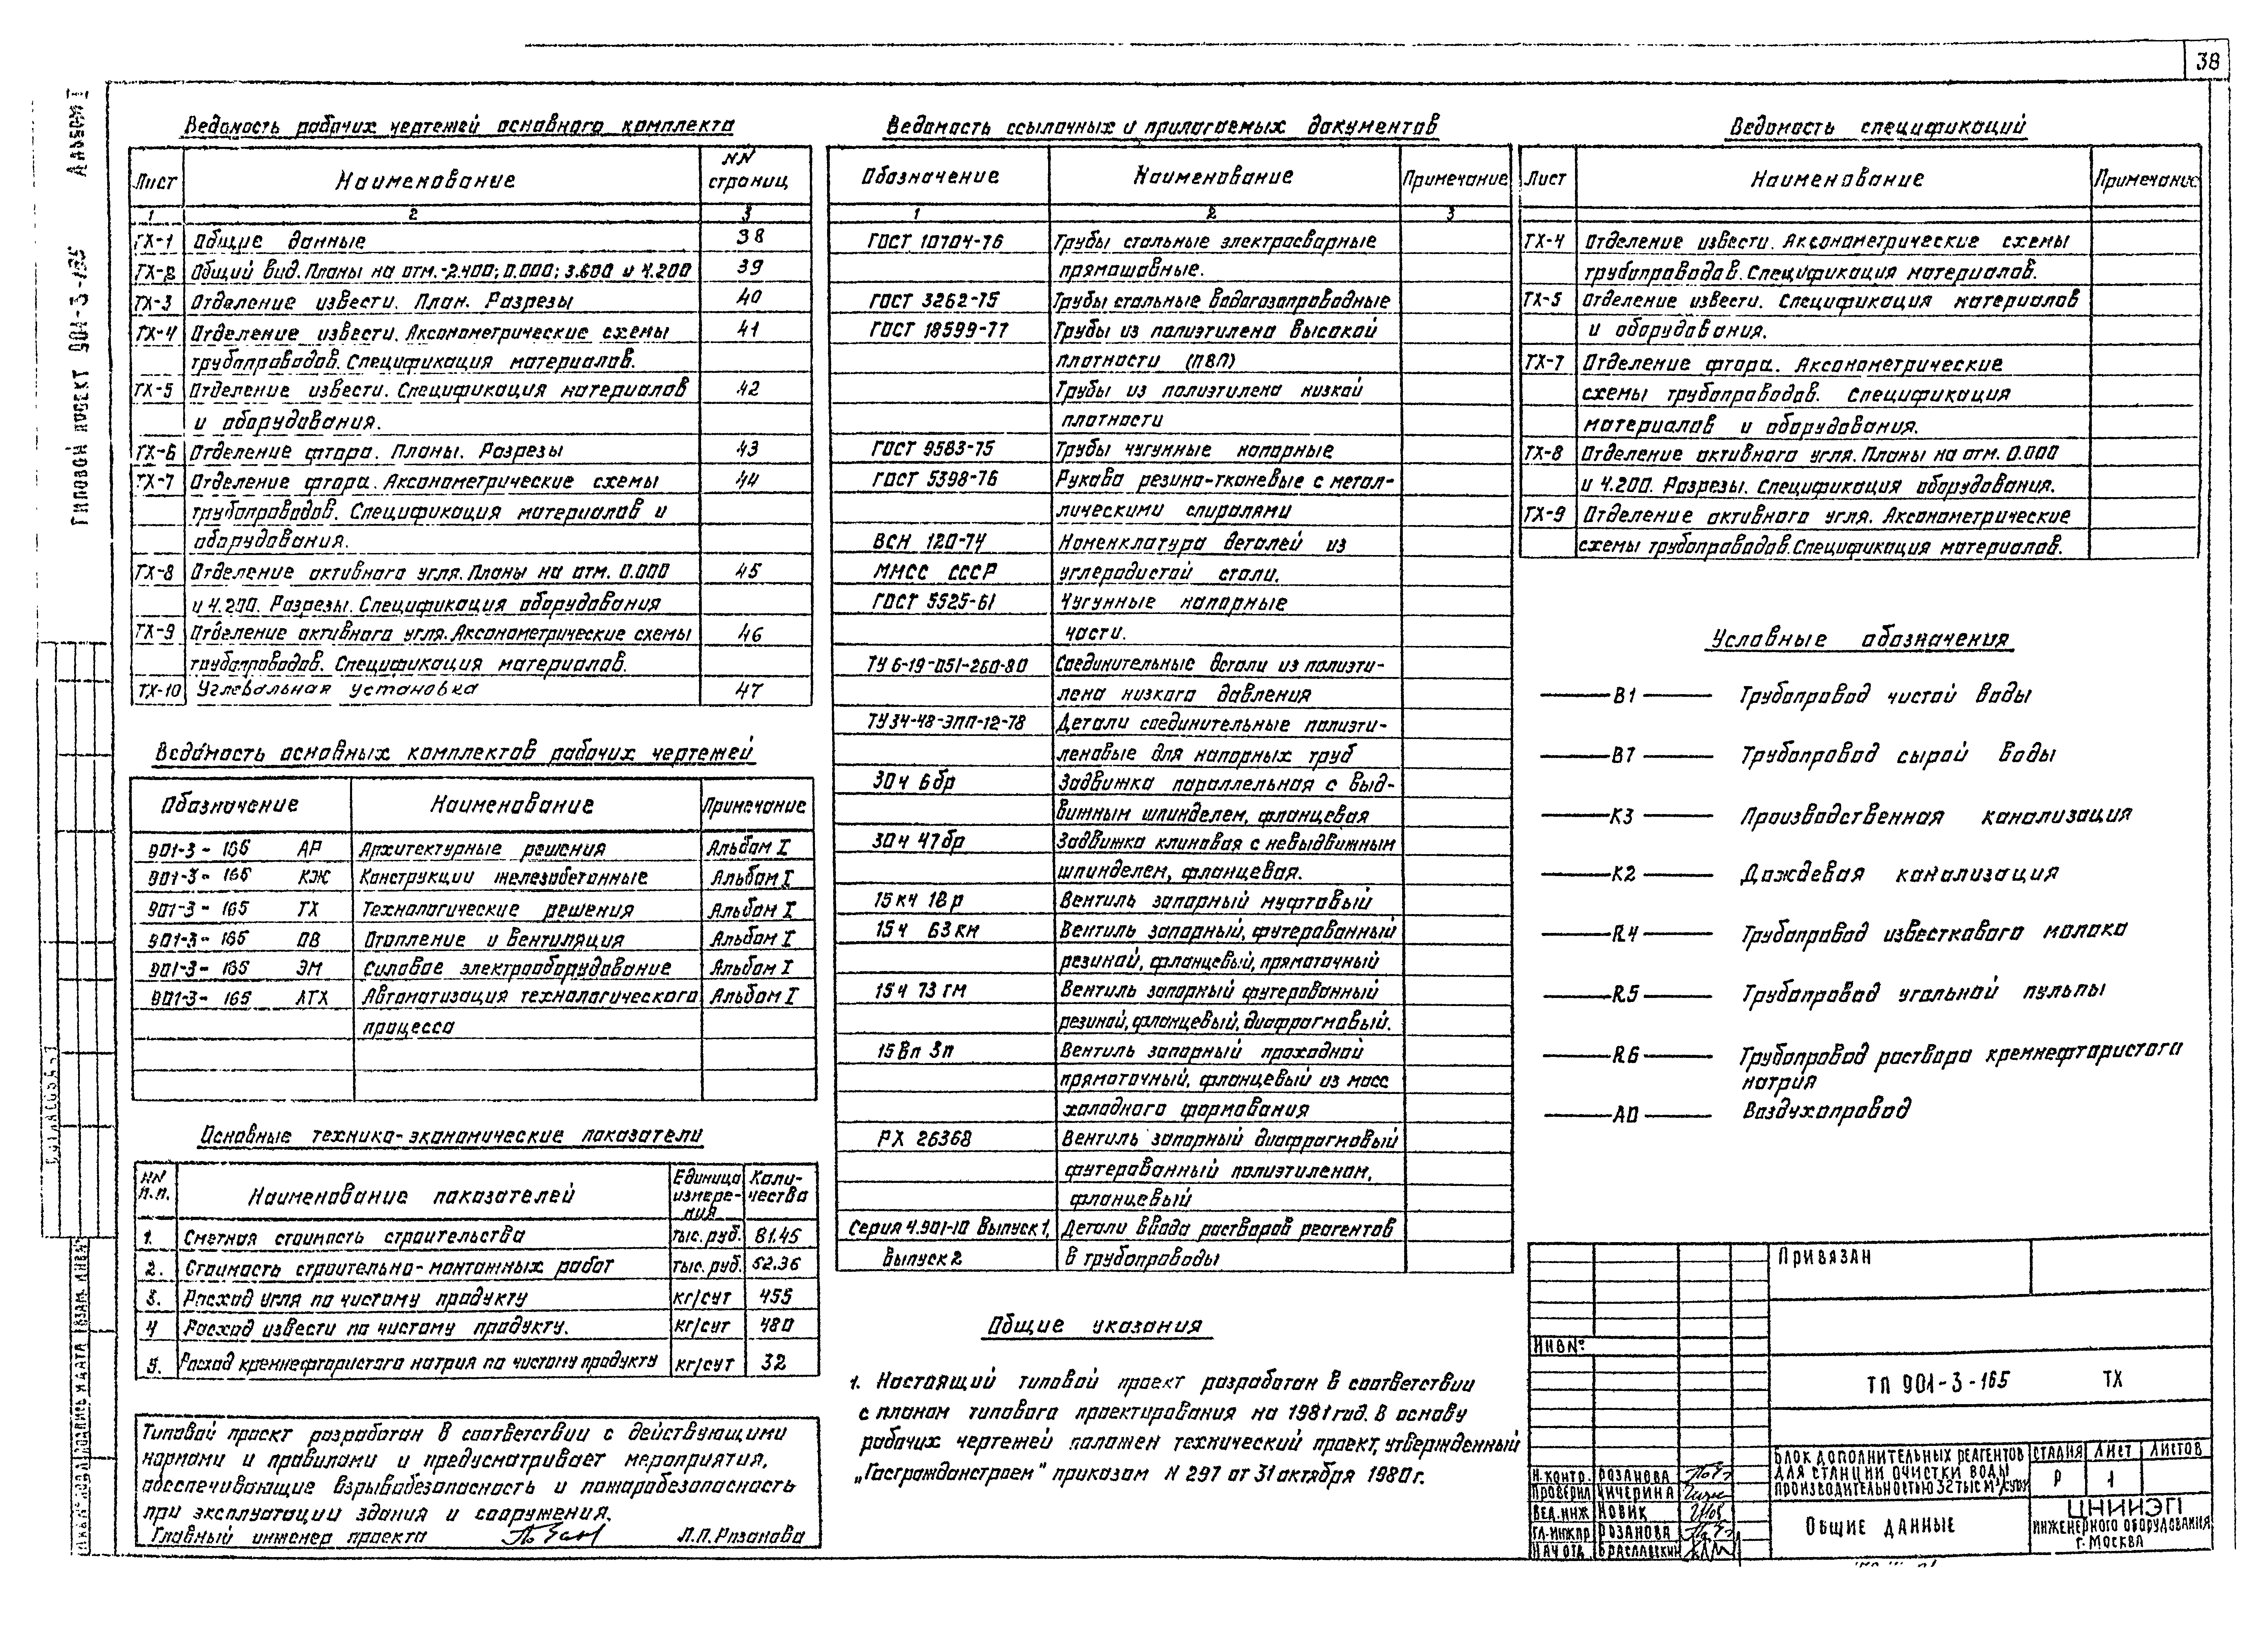 38
Альбом I
Типовой проект 901-3-165
Ведомость рабочих чертежей основного комплекта
Лист Наименование NN страниц
1 2 3
ТХ-1 Общие данные 38
ТХ-2 Общий вид. Планы на отм.-2.400; 0.000; 3.600 и 4.200 39
ТХ-3 Отделение извести. План. Разрезы 40
ТХ-4 Отделение извести. Аксонометрические схемы 41
трубопроводов. Спецификация материалов.
ТХ-5 Отделение извести. Спецификация материалов 42
и оборудования.
ТХ-6 Отделение фтора. Планы. Разрезы 43
ТХ-7 Отделение фтора. Аксонометрические схемы 44
трубопроводов. Спецификация материалов и
оборудования.
ТХ-8 Отделение активного угля. Планы на отм. 0.000 45
и 4.200. Разрезы. Спецификация оборудования
ТХ-9 Отделение активного угля. Аксонометрические схемы 46
трубопроводов. Спецификация материалов.
ТХ-10 Углевальная установка 47
Ведомость основных комплектов рабочих чертежей
Обозначение Наименование Примечание
901-3-165 АР Архитектурные решения Альбом I
901-3-165 КЖ Конструкции железобетонные Альбом I
901-3-165 ТХ Технологические решения Альбом I
901-3-165 ОВ Отопление и вентиляция Альбом I
901-3-165 ЭМ Силовое электрооборудование Альбом I
901-3-165 АТХ Автоматизация технологического Альбом I
процесса
Основные технико-экономические показатели
NN п.п. Наименование показателей Единица измерения Количества
1. Сметная стоимость строительства тыс. руб. 81.45
2. Стоимость строительно-монтажных работ тыс. руб. 52.36
3. Расход угля по чистому продукту кг/сут 455
4 Расход извести по чистому продукту. кг/сут 480
5. Расход кремнефтористого натрия по чистому продукту кг/сут 32
Типовой проект разработан в соответствии с действующими
нормами и правилами и предусматривает мероприятия,
обеспечивающие взрывобезопасность и пожаробезопасность
при эксплуатации здания и сооружения.
Главный инженер проекта Л.П. Розанова
Ведомость ссылочных и прилагаемых документов
Обозначение Наименование Примечание
1 2 3
ГОСТ 10704-76 Трубы стальные электросварные
прямошовные.
ГОСТ 3262-75 Трубы стальные водогазопроводные
ГОСТ 18599-77 Трубы из полиэтилена высокой
плотности (ПВП)
Трубы из полиэтилена низкой
плотности
ГОСТ 9583-75 Трубы чугунные напорные
ГОСТ 5398-76 Рукава резино-тканевые с метал-
лическими спиралями
ВСН 120-74 Номенклатура деталей из
ММСС СССР углеродистой стали.
ГОСТ 5525-61 Чугунные напорные
части.
ТУ 6-19-051-260-80 Соединительные детали из полиэти-
лена низкого давления
ТУ34-48-ЭПП-12-78 Детали соединительные полиэти-
леновые для напорных труб
30ч 6бр Задвижка параллельная с выд-
вижным шпинделем, фланцевая
30ч 47бр Задвижка клиновая с невыдвижным
шпинделем, фланцевая.
15кч 18р Вентиль запорный муфтовый
15ч 63км Вентиль запорный, футерованный
резиной, фланцевый, прямоточный
15ч 73гм Вентиль запорный футерованный
резиной, фланцевый, диафрагмовый.
15Вп 3п Вентиль запорный проходной
прямоточный, фланцевый из масс
холодного формования
РХ 26368 Вентиль запорный диафрагмовый
футерованный полиэтиленом,
фланцевый
Серия 4.901-10 Выпуск 1, Детали ввода растворов реагентов
Выпуск 2 в трубопроводы
Общие указания
1. Настоящий типовой проект разработан в соответствии
с планом типового проектирования на 1981 год. В основу
рабочих чертежей положен технический проект, утвержденный
„Госгражданстроем" приказом N 297 от 31 октября 1980 г.
Ведомость спецификаций
Лист Наименование Примечание
ТХ-4 Отделение извести. Аксонометрические схемы
трубопроводов. Спецификация материалов.
ТХ-5 Отделение извести. Спецификация материалов
и оборудования.
ТХ-7 Отделение фтора. Аксонометрические
схемы трубопроводов. Спецификация
материалов и оборудования.
ТХ-8 Отделение активного угля. Планы на отм. 0.000
и 4.200. Разрезы. Спецификация оборудования.
ТХ-9 Отделение активного угля. Аксонометрические
схемы трубопроводов. Спецификация материалов.
Условные обозначения
В1 Трубопровод чистой воды
В7 Трубопровод сырой воды
К3 Производственная канализация
К2 Дождевая канализация
R4 Трубопровод известкового молока
R5 Трубопровод угольной пульпы
R6 Трубопровод раствора кремнефтористого
натрия
А0 Воздухопровод
Привязан
Инв №:
ТП 901-3-165 ТХ
Блок дополнительных реагентов
для станции очистки воды
производительностью 32 тыс м³/сутки
Стадия Лист Листов
Р 1
Н. контр. Розанова
Проверил Чичерина
Вед. инж Новик
Гл. инж пр Розанова
Нач отд. Браславский
Общие данные
ЦНИИЭП
инженерного оборудования
г. Москва